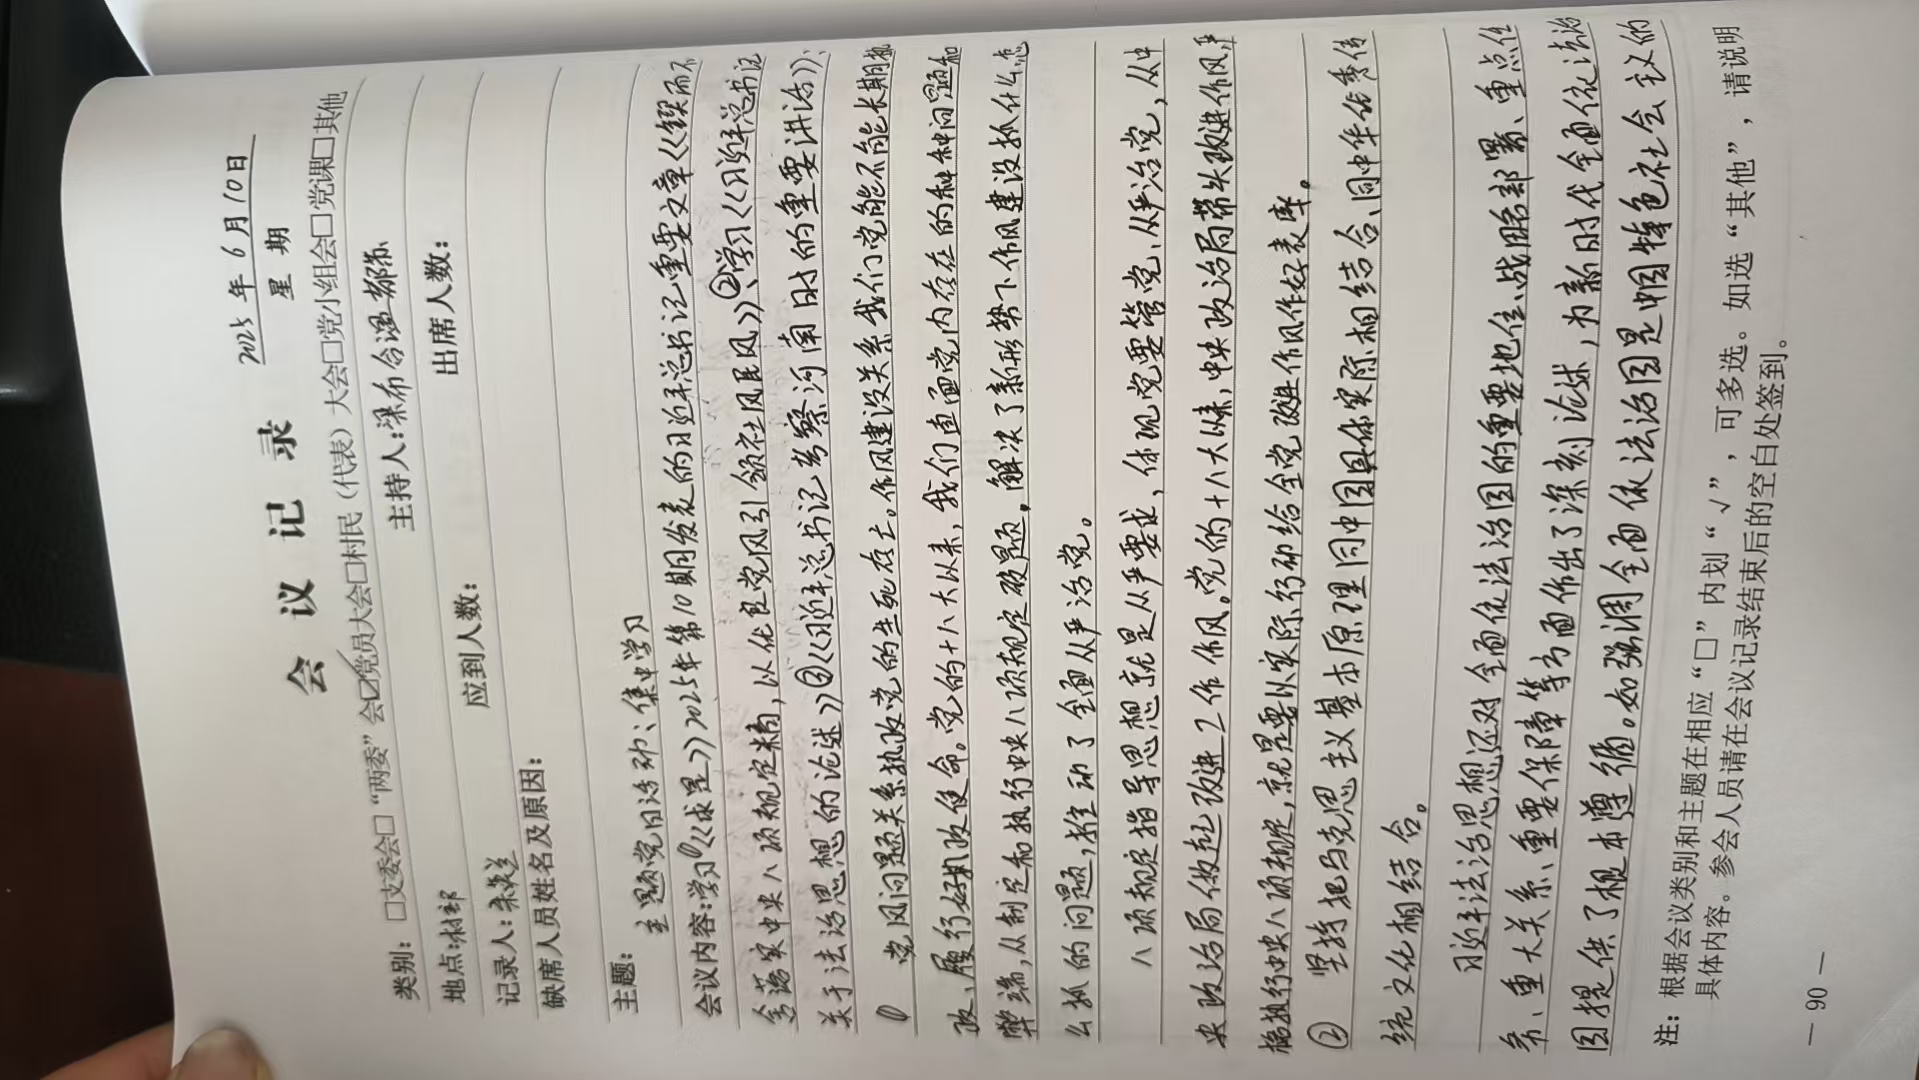 会 议 记 录
2025年6月10日
星 期
类别：□支委会□“两委”会☑党员大会□村民（代表）大会□党小组会□党课□其他
地点：村部 主持人：
记录人： 应到人数： 出席人数：
缺席人员姓名及原因：
主题： 主题党日活动、集中学习
会议内容：学习①《《求是》》2025年第10期发表的习近平总书记重要文章《《锲而不
舍落实中央八项规定精神，以优良党风引领社风民风》》②学习《《习近平总书记
关于法治思想的论述》》③《《习近平总书记考察河南时的重要讲话》》；
① 党风问题关系执政党的生死存亡。作风建设关系我们党能不能长期执
政、履行好执政使命。党的十八大以来，我们直面党内存在的种种问题和
弊端，从制定和执行中央八项规定破题，解决了新形势下作风建设抓什么怎
么抓的问题，推动了全面从严治党。
八项规定指导思想就是从严要求，体现党要管党、从严治党，从中
央政治局做起改进工作作风。党的十八大以来，中央政治局带头改进作风，严
格执行中央八项规定，就是要以实际行动给全党改进作风作好表率。
② 坚持把马克思主义基本原理同中国具体实际相结合、同中华优秀传
统文化相结合。
习近平法治思想还对全面依法治国的重要地位、战略部署、重点任
务、重大关系、重要保障等方面作出了深刻论述，为新时代全面依法治
国提供了根本遵循。如强调全面依法治国是中国特色社会主义的
注：根据会议类别和主题在相应“□”内划“√”，可多选。如选“其他”，请说明
具体内容。参会人员请在会议记录结束后的空白处签到。
— 90 —